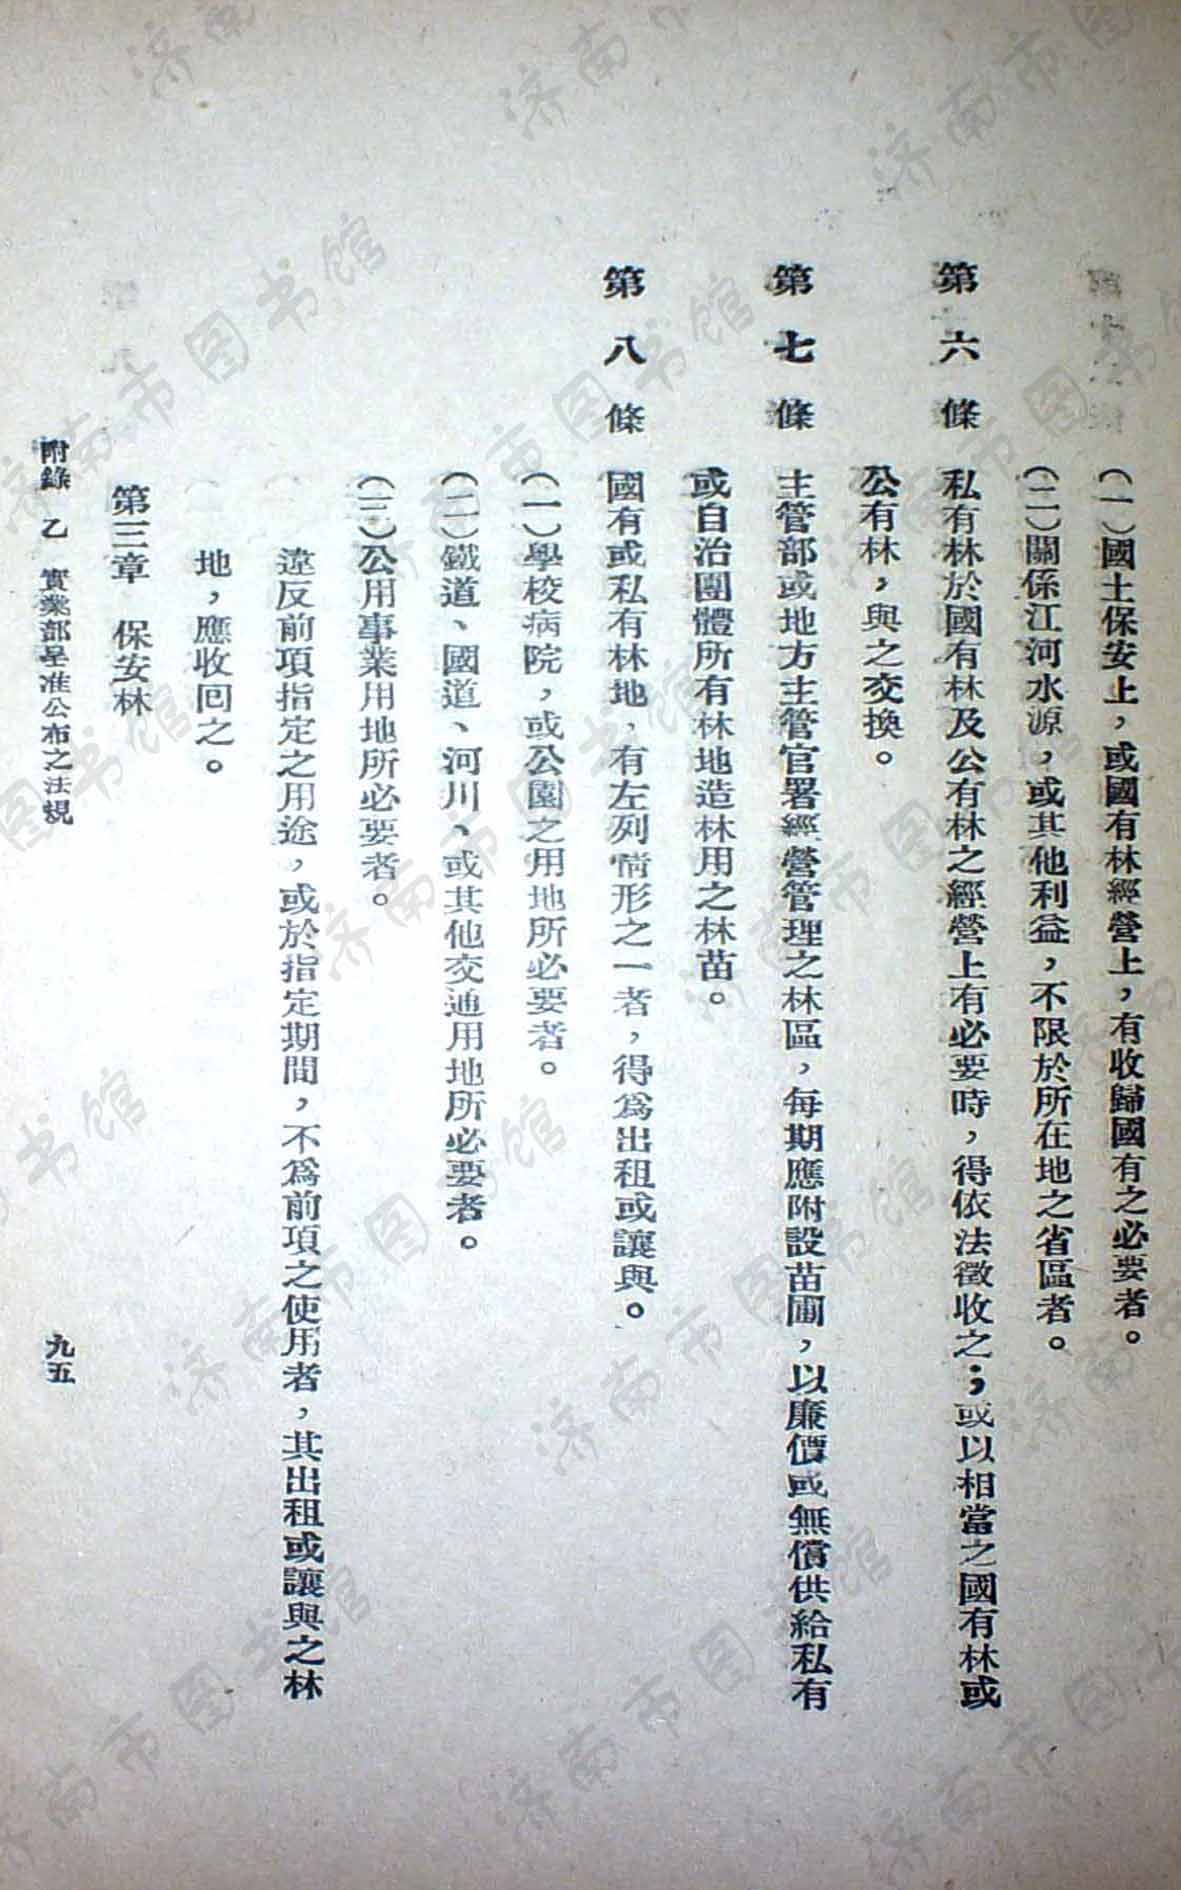 (一)國土保安上，或國有林經營上，有收歸國有之必要者。
(二)關係江河水源，或其他利益，不限於所在地之省區者。
第六條 私有林於國有林及公有林之經營上有必要時，得依法徵收之；或以相當之國有林或
公有林，與之交換。
第七條 主管部或地方主管官署經營管理之林區，每期應附設苗圃，以廉價或無償供給私有
或自治團體所有林地造林用之林苗。
第八條 國有或私有林地，有左列情形之一者，得爲出租或讓與。
(一)學校病院，或公園之用地所必要者。
(二)鐵道、國道、河川、或其他交通用地所必要者。
(三)公用事業用地所必要者。
違反前項指定之用途，或於指定期間，不爲前項之使用者，其出租或讓與之林
地，應收回之。
第三章 保安林
附錄 乙 實業部呈准公布之法規 九五
济南市图书馆